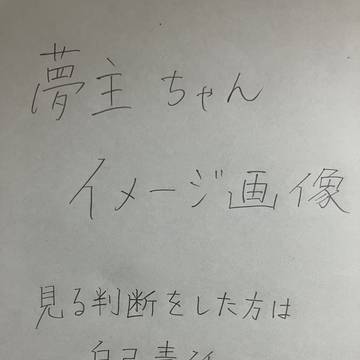 夢主ちゃん
イメージ画像
見る判断をした方は
自己責